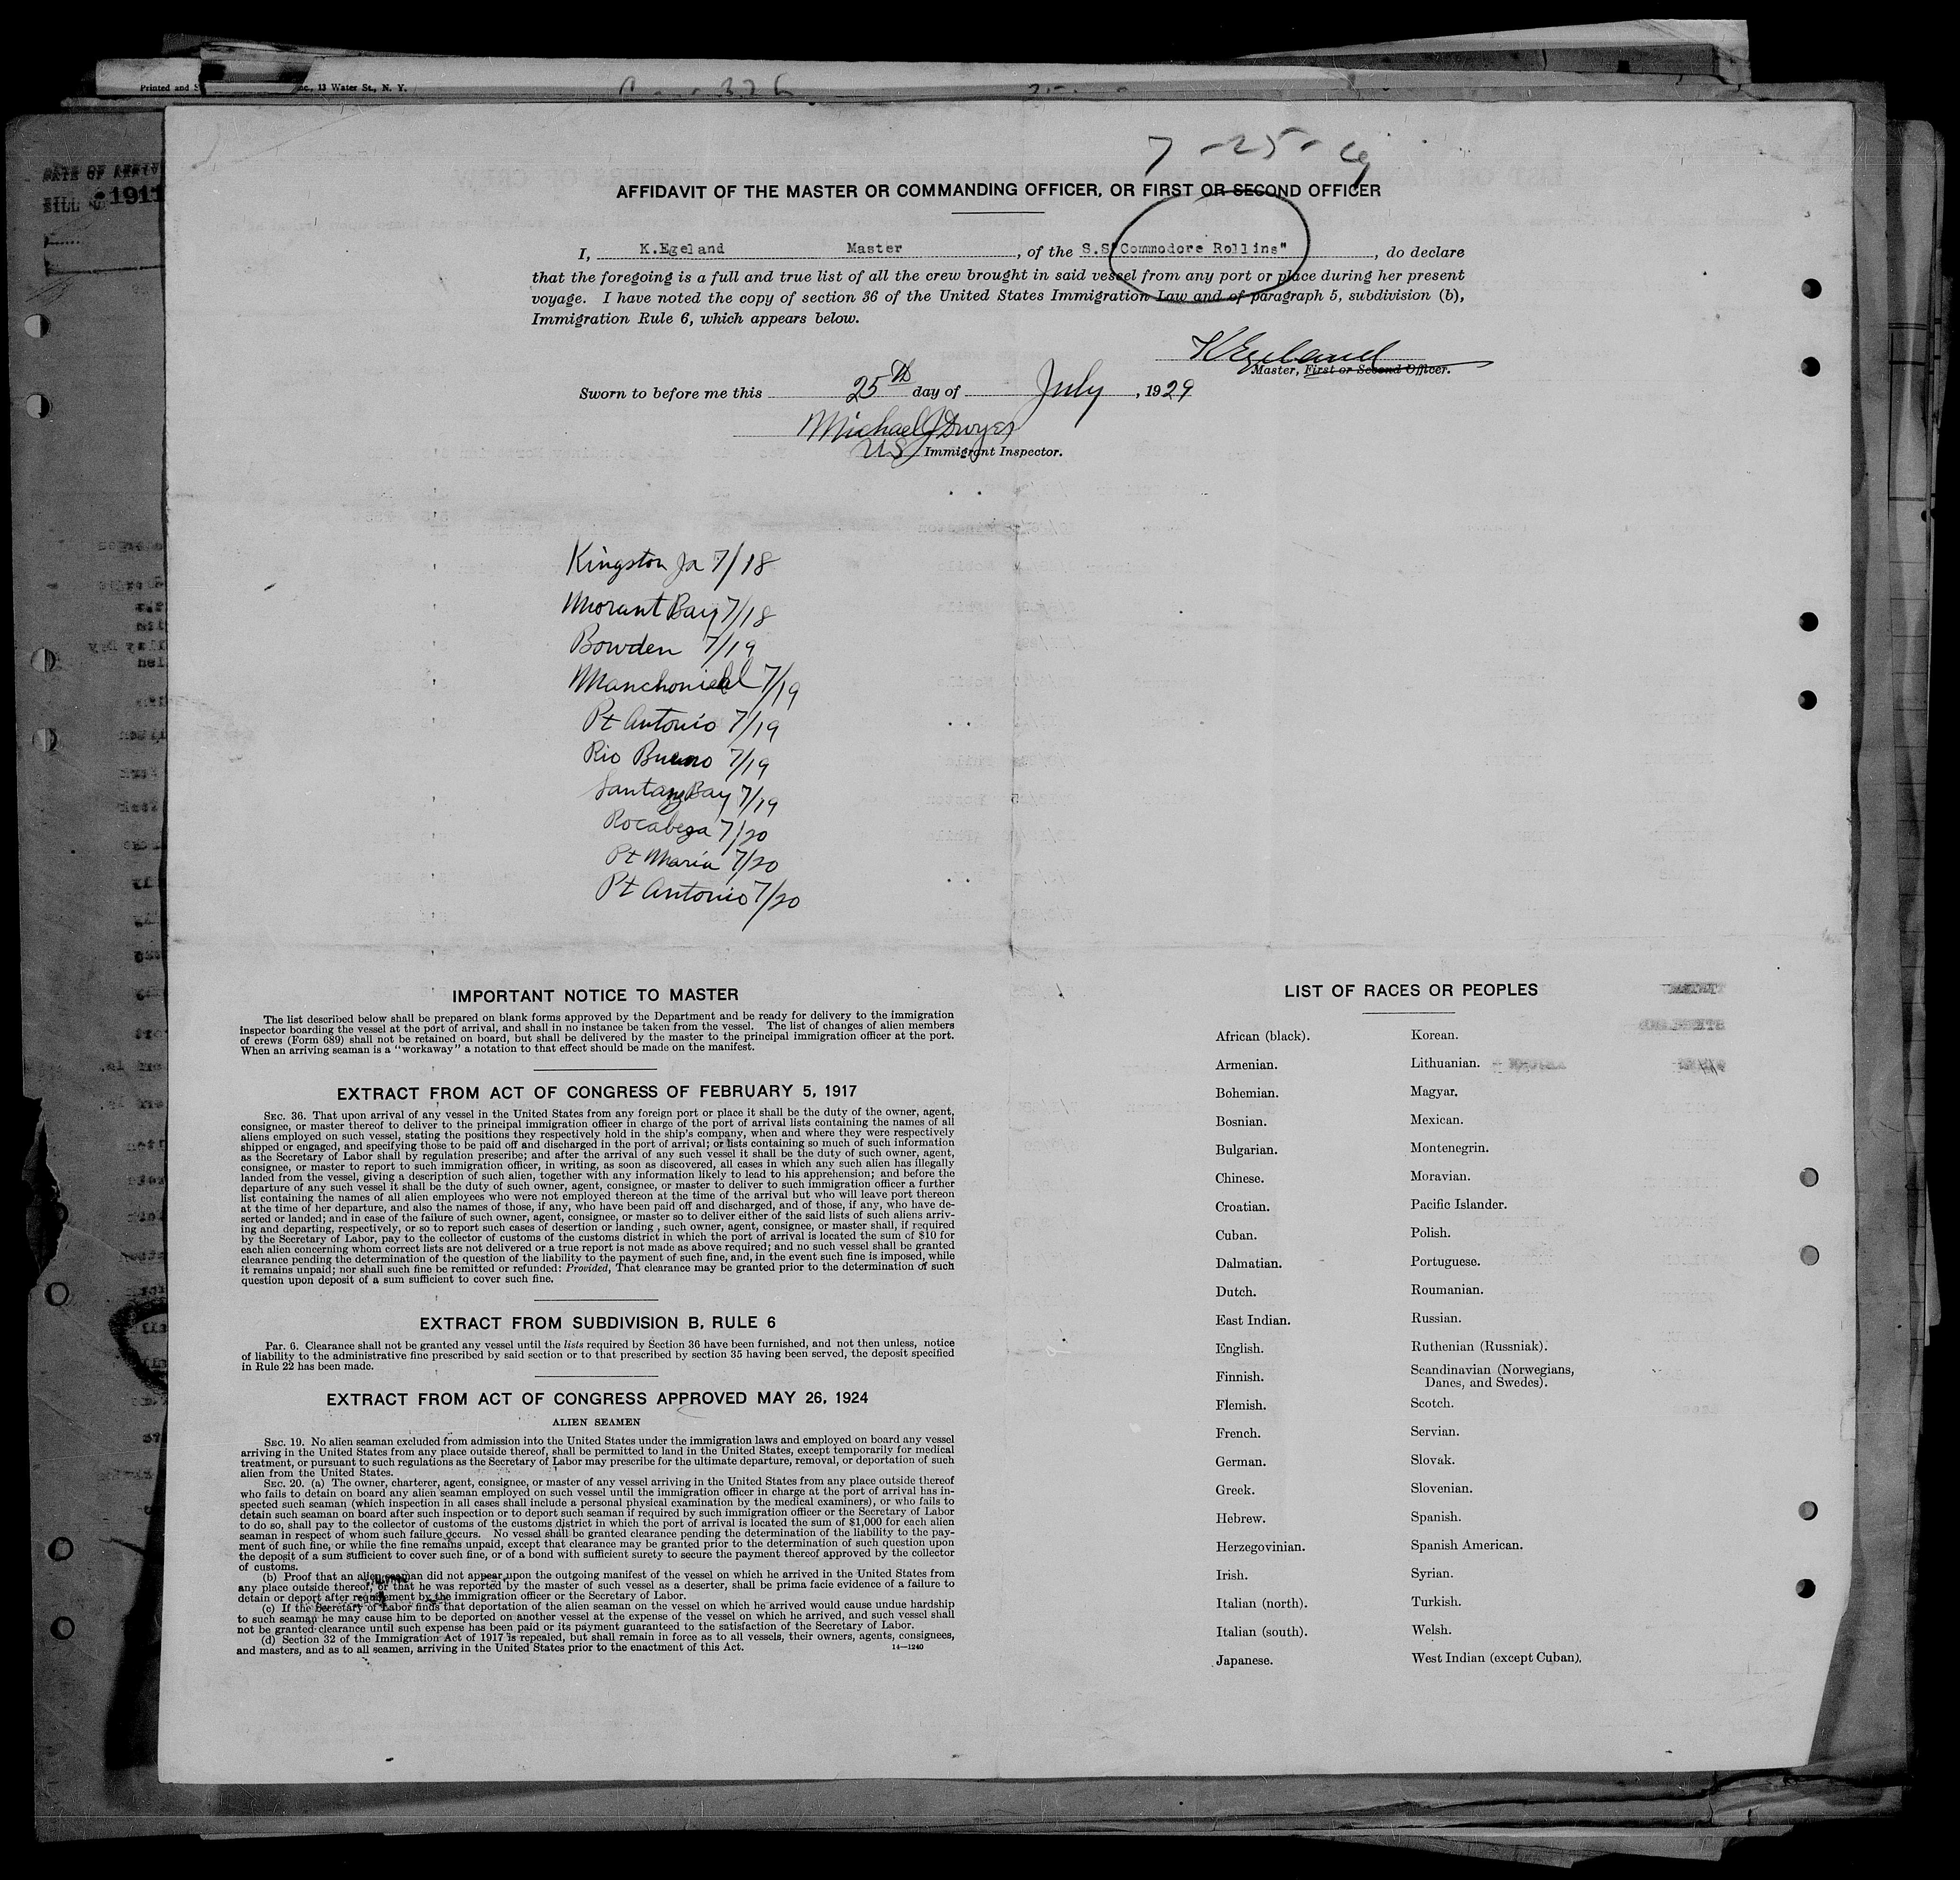 Printed and S nc., 13 Water St., N. Y.
7-25-29
DATE OF ARRIV
1911
AFFIDAVIT OF THE MASTER OR COMMANDING OFFICER, OR FIRST OR SECOND OFFICER
I, K.Egeland Master, of the S.S"Commodore Rollins", do declare
that the foregoing is a full and true list of all the crew brought in said vessel from any port or place during her present
voyage. I have noted the copy of section 36 of the United States Immigration Law and of paragraph 5, subdivision (b),
Immigration Rule 6, which appears below.
K Egeland
Master, First or Second Officer.
Sworn to before me this 25th day of July, 1929
Michael J Dwyer
US Immigrant Inspector.
Kingston Ja 7/18
Morant Bay 7/18
Bowden 7/19
Manchoneal 7/19
Pt Antonio 7/19
Rio Bueno 7/19
Bay 7/19
Rocabeza 7/20
Pt Maria 7/20
Pt Antonio 7/20
IMPORTANT NOTICE TO MASTER
The list described below shall be prepared on blank forms approved by the Department and be ready for delivery to the immigration
inspector boarding the vessel at the port of arrival, and shall in no instance be taken from the vessel. The list of changes of alien members
of crews (Form 689) shall not be retained on board, but shall be delivered by the master to the principal immigration officer at the port.
When an arriving seaman is a "workaway" a notation to that effect should be made on the manifest.
EXTRACT FROM ACT OF CONGRESS OF FEBRUARY 5, 1917
SEC. 36. That upon arrival of any vessel in the United States from any foreign port or place it shall be the duty of the owner, agent,
consignee, or master thereof to deliver to the principal immigration officer in charge of the port of arrival lists containing the names of all
aliens employed on such vessel, stating the positions they respectively hold in the ship's company, when and where they were respectively
shipped or engaged, and specifying those to be paid off and discharged in the port of arrival; or lists containing so much of such information
as the Secretary of Labor shall by regulation prescribe; and after the arrival of any such vessel it shall be the duty of such owner, agent,
consignee, or master to report to such immigration officer, in writing, as soon as discovered, all cases in which any such alien has illegally
landed from the vessel, giving a description of such alien, together with any information likely to lead to his apprehension; and before the
departure of any such vessel it shall be the duty of such owner, agent, consignee, or master to deliver to such immigration officer a further
list containing the names of all alien employees who were not employed thereon at the time of the arrival but who will leave port thereon
at the time of her departure, and also the names of those, if any, who have been paid off and discharged, and of those, if any, who have de-
serted or landed; and in case of the failure of such owner, agent, consignee, or master so to deliver either of the said lists of such aliens arriv-
ing and departing, respectively, or so to report such cases of desertion or landing , such owner, agent, consignee, or master shall, if required
by the Secretary of Labor, pay to the collector of customs of the customs district in which the port of arrival is located the sum of $10 for
each alien concerning whom correct lists are not delivered or a true report is not made as above required; and no such vessel shall be granted
clearance pending the determination of the question of the liability to the payment of such fine, and, in the event such fine is imposed, while
it remains unpaid; nor shall such fine be remitted or refunded: Provided, That clearance may be granted prior to the determination of such
question upon deposit of a sum sufficient to cover such fine.
EXTRACT FROM SUBDIVISION B, RULE 6
Par. 6. Clearance shall not be granted any vessel until the lists required by Section 36 have been furnished, and not then unless, notice
of liability to the administrative fine prescribed by said section or to that prescribed by section 35 having been served, the deposit specified
in Rule 22 has been made.
EXTRACT FROM ACT OF CONGRESS APPROVED MAY 26, 1924
ALIEN SEAMEN
SEC. 19. No alien seaman excluded from admission into the United States under the immigration laws and employed on board any vessel
arriving in the United States from any place outside thereof, shall be permitted to land in the United States, except temporarily for medical
treatment, or pursuant to such regulations as the Secretary of Labor may prescribe for the ultimate departure, removal, or deportation of such
alien from the United States.
SEC. 20. (a) The owner, charterer, agent, consignee, or master of any vessel arriving in the United States from any place outside thereof
who fails to detain on board any alien seaman employed on such vessel until the immigration officer in charge at the port of arrival has in-
spected such seaman (which inspection in all cases shall include a personal physical examination by the medical examiners), or who fails to
detain such seaman on board after such inspection or to deport such seaman if required by such immigration officer or the Secretary of Labor
to do so, shall pay to the collector of customs of the customs district in which the port of arrival is located the sum of $1,000 for each alien
seaman in respect of whom such failure occurs. No vessel shall be granted clearance pending the determination of the liability to the pay-
ment of such fine, or while the fine remains unpaid, except that clearance may be granted prior to the determination of such question upon
the deposit of a sum sufficient to cover such fine, or of a bond with sufficient surety to secure the payment thereof approved by the collector
of customs.
(b) Proof that an alien seaman did not appear upon the outgoing manifest of the vessel on which he arrived in the United States from
any place outside thereof, or that he was reported by the master of such vessel as a deserter, shall be prima facie evidence of a failure to
detain or deport after requirement by the immigration officer or the Secretary of Labor.
(c) If the Secretary of Labor finds that deportation of the alien seaman on the vessel on which he arrived would cause undue hardship
to such seaman he may cause him to be deported on another vessel at the expense of the vessel on which he arrived, and such vessel shall
not be granted clearance until such expense has been paid or its payment guaranteed to the satisfaction of the Secretary of Labor.
(d) Section 32 of the Immigration Act of 1917 is repealed, but shall remain in force as to all vessels, their owners, agents, consignees,
and masters, and as to all seamen, arriving in the United States prior to the enactment of this Act. 14—1240
LIST OF RACES OR PEOPLES
African (black). Korean.
Armenian. Lithuanian.
Bohemian. Magyar.
Bosnian. Mexican.
Bulgarian. Montenegrin.
Chinese. Moravian.
Croatian. Pacific Islander.
Cuban. Polish.
Dalmatian. Portuguese.
Dutch. Roumanian.
East Indian. Russian.
English. Ruthenian (Russniak).
Finnish. Scandinavian (Norwegians,
Danes, and Swedes).
Flemish. Scotch.
French. Servian.
German. Slovak.
Greek. Slovenian.
Hebrew. Spanish.
Herzegovinian. Spanish American.
Irish. Syrian.
Italian (north). Turkish.
Italian (south). Welsh.
Japanese. West Indian (except Cuban).